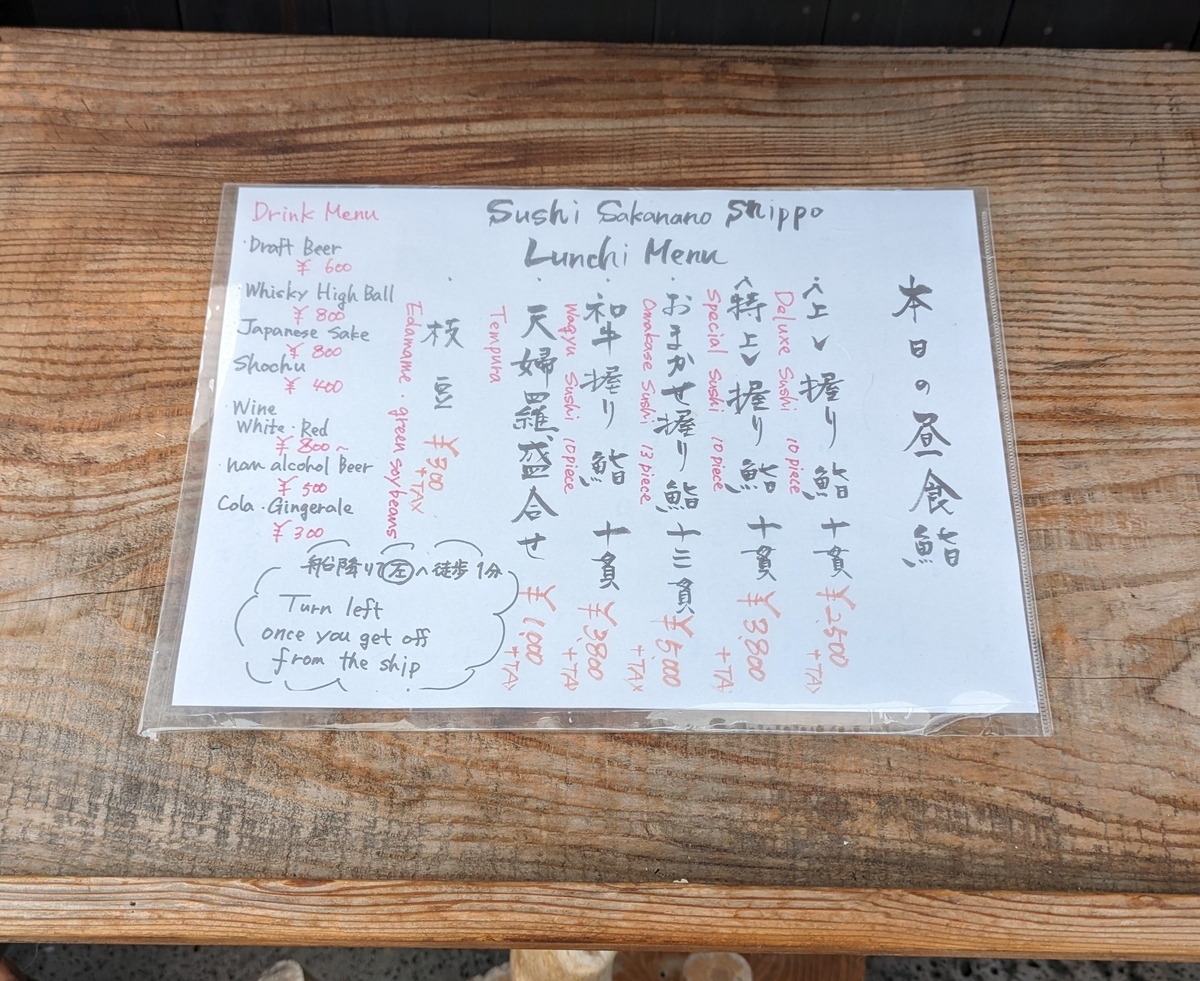 Sushi Sakanano Shippo
Lunchi Menu
本日の昼食鮨
・〈上〉握り鮨 十貫 ¥2,500 +TAX
Deluxe Sushi 10piece
・〈特上〉握り鮨 十貫 ¥3,800 +TAX
Special Sushi 10piece
・おまかせ握り鮨 十三貫 ¥5,000 +TAX
Omakase Sushi 13piece
・和牛握り鮨 十貫 ¥3,800 +TAX
Wagyu Sushi 10piece
・天婦羅盛合せ ¥1,000 +TAX
Tempura
・枝豆 ¥300 +TAX
Edamame・green soybeans
Drink Menu
・Draft Beer
¥600
Whisky High Ball
¥800
Japanese Sake
¥800
Shochu
¥400
Wine
White・Red
¥800~
・nan alcohol Beer
¥500
Cola・Gingerale
¥300
船降りて左へ徒歩1分
Turn left
once you get off
from the ship